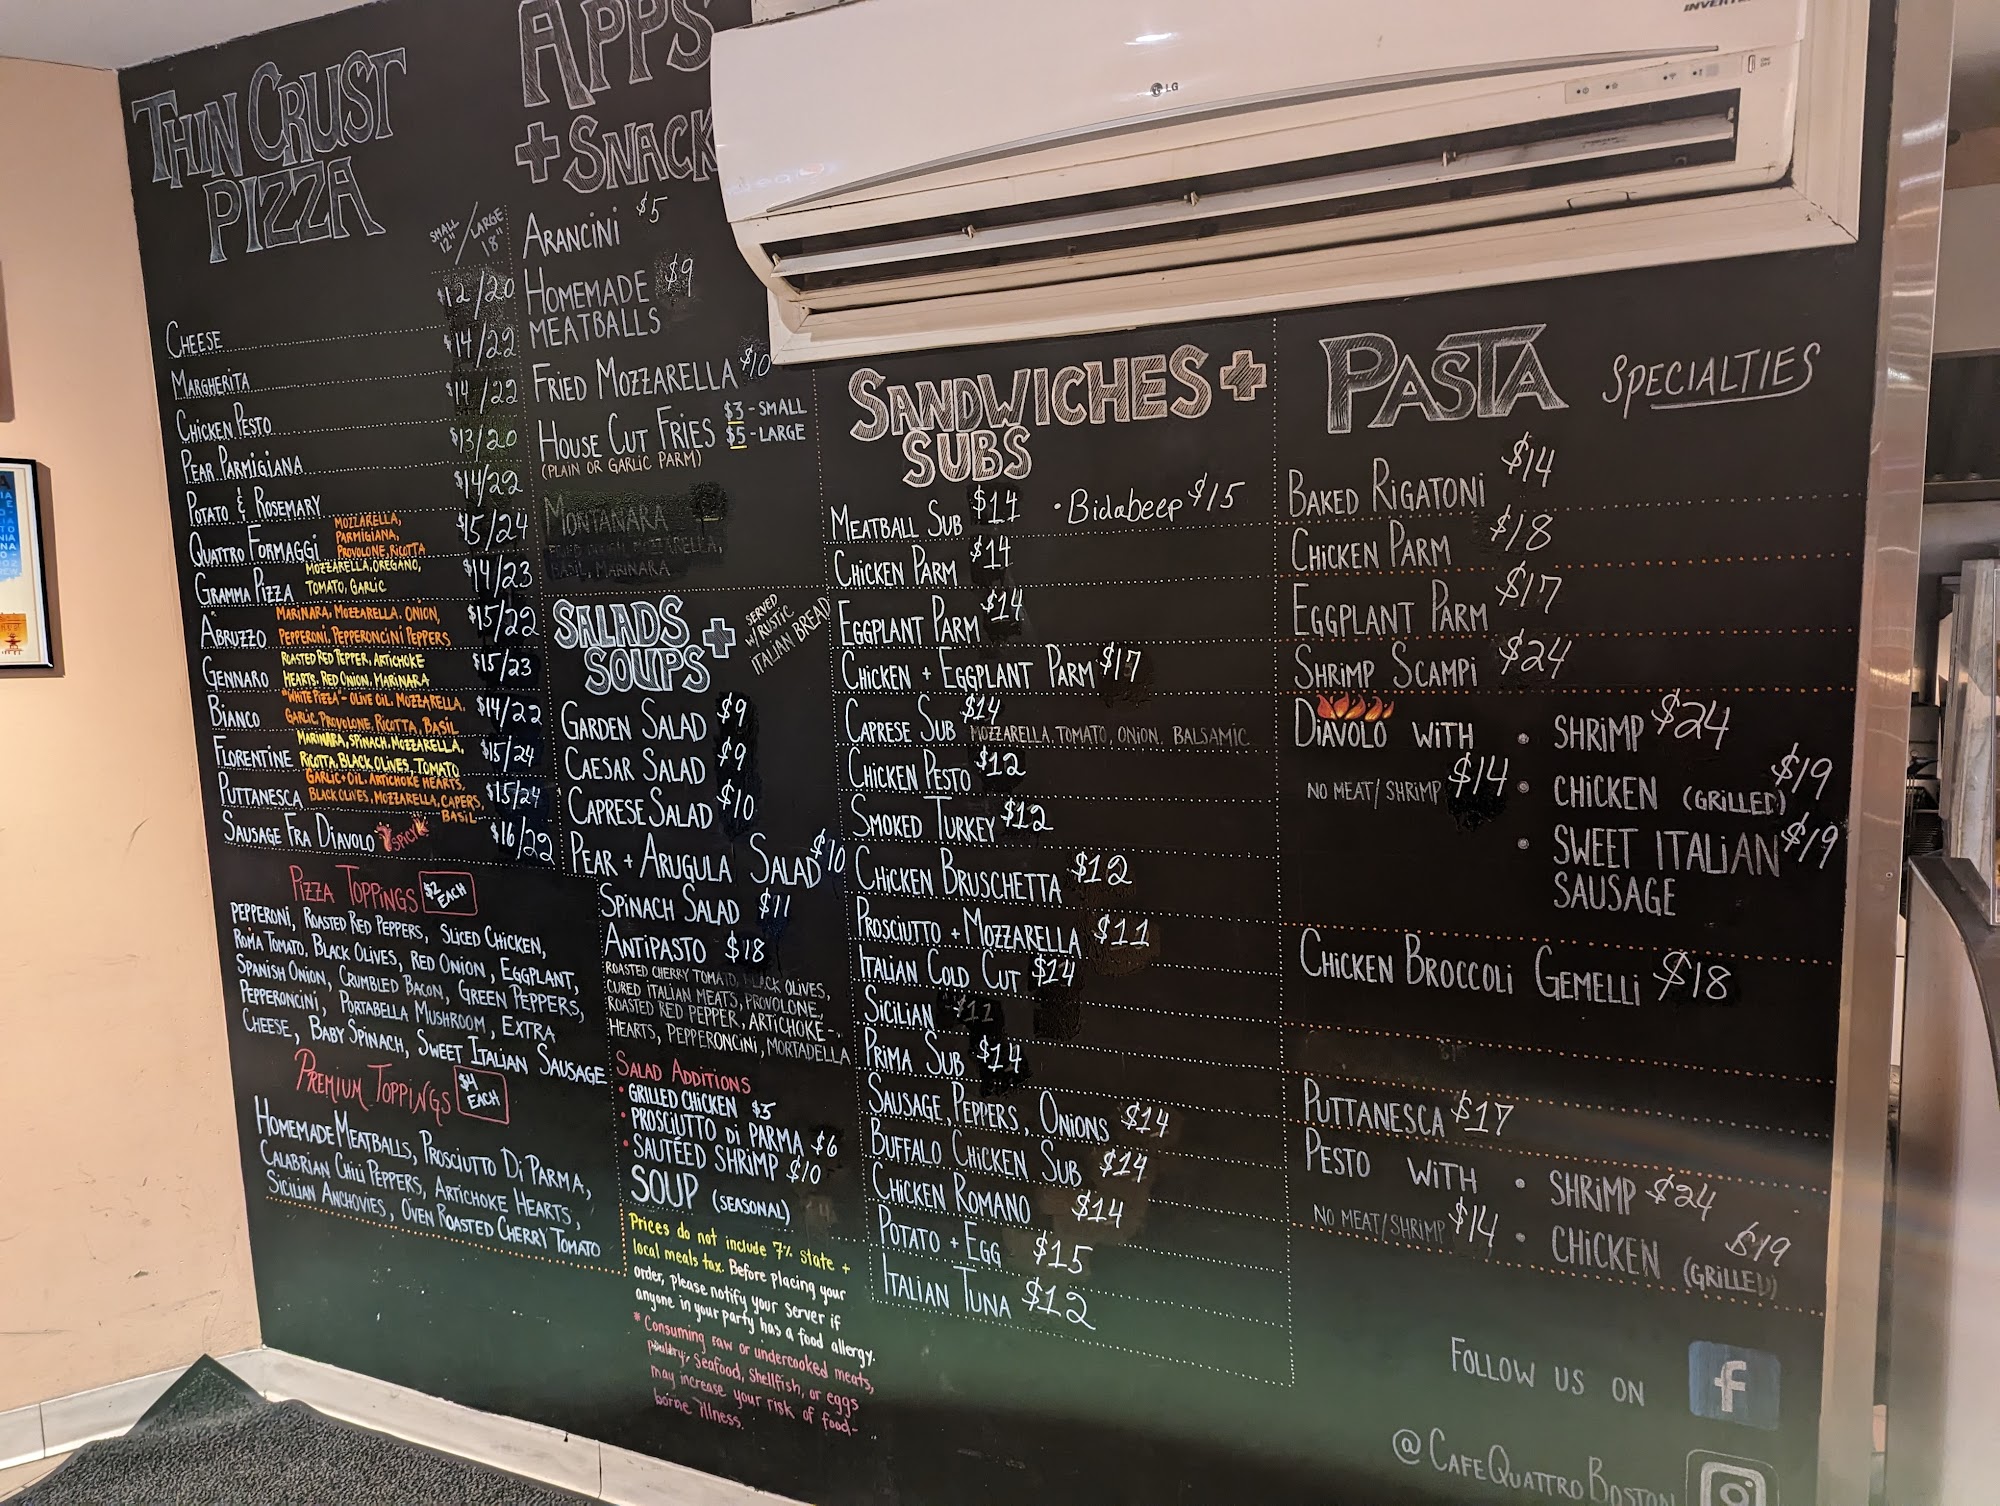 THIN CRUST
PIZZA
SMALL 12" / LARGE 18"
CHEESE $12/20
MARGHERITA $14/22
CHICKEN PESTO $14/22
PEAR PARMIGIANA $13/20
POTATO & ROSEMARY $14/22
QUATTRO FORMAGGI MOZZARELLA, PARMIGIANA, PROVOLONE, RICOTTA $15/24
GRAMMA PIZZA MOZZARELLA, OREGANO, TOMATO, GARLIC $14/23
ABRUZZO MARINARA, MOZZARELLA, ONION, PEPPERONI, PEPPERONCINI PEPPERS $15/22
GENNARO ROASTED RED PEPPER, ARTICHOKE HEARTS, RED ONION, MARINARA $15/23
BIANCO "WHITE PIZZA" - OLIVE OIL, MOZZARELLA, GARLIC, PROVOLONE, RICOTTA, BASIL $14/22
FLORENTINE MARINARA, SPINACH, MOZZARELLA, RICOTTA, BLACK OLIVES, TOMATO $15/24
PUTTANESCA GARLIC+OIL, ARTICHOKE HEARTS, BLACK OLIVES, MOZZARELLA, CAPERS, BASIL $15/24
SAUSAGE FRA DIAVOLO SPICY $16/22
PIZZA TOPPINGS $2 EACH
PEPPERONI, ROASTED RED PEPPERS, SLICED CHICKEN,
ROMA TOMATO, BLACK OLIVES, RED ONION, EGGPLANT,
SPANISH ONION, CRUMBLED BACON, GREEN PEPPERS,
PEPPERONCINI, PORTABELLA MUSHROOM, EXTRA
CHEESE, BABY SPINACH, SWEET ITALIAN SAUSAGE
PREMIUM TOPPINGS $4 EACH
HOMEMADE MEATBALLS, PROSCIUTTO DI PARMA,
CALABRIAN CHILI PEPPERS, ARTICHOKE HEARTS,
SICILIAN ANCHOVIES, OVEN ROASTED CHERRY TOMATO
APPS
+ SNACK
ARANCINI $5
HOMEMADE $9
MEATBALLS
FRIED MOZZARELLA $10
HOUSE CUT FRIES $3 - SMALL
$5 - LARGE
(PLAIN OR GARLIC PARM)
MONTANARA
FRIED DOUGH, MOZZARELLA,
BASIL, MARINARA
SALADS +
SOUPS
SERVED
W/RUSTIC
ITALIAN BREAD
GARDEN SALAD $9
CAESAR SALAD $9
CAPRESE SALAD $10
PEAR + ARUGULA SALAD $10
SPINACH SALAD $11
ANTIPASTO $18
ROASTED CHERRY TOMATO, BLACK OLIVES,
CURED ITALIAN MEATS, PROVOLONE,
ROASTED RED PEPPER, ARTICHOKE-
HEARTS, PEPPERONCINI, MORTADELLA
SALAD ADDITIONS
• GRILLED CHICKEN $5
• PROSCIUTTO DI PARMA $6
• SAUTÉED SHRIMP $10
SOUP (SEASONAL)
Prices do not include 7% state +
local meals tax. Before placing your
order, please notify your server if
anyone in your party has a food allergy.
* Consuming raw or undercooked meats,
poultry, seafood, shellfish, or eggs
may increase your risk of food-
borne illness.
SANDWICHES +
SUBS
MEATBALL SUB $11 • Bidabeep $15
CHICKEN PARM $14
EGGPLANT PARM $14
CHICKEN + EGGPLANT PARM $17
CAPRESE SUB $14 MOZZARELLA, TOMATO, ONION, BALSAMIC
CHICKEN PESTO $12
SMOKED TURKEY $12
CHICKEN BRUSCHETTA $12
PROSCIUTTO + MOZZARELLA $11
ITALIAN COLD CUT $14
SICILIAN
PRIMA SUB $14
SAUSAGE, PEPPERS, ONIONS $14
BUFFALO CHICKEN SUB $14
CHICKEN ROMANO $14
POTATO + EGG $15
ITALIAN TUNA $12
PASTA SPECIALTIES
BAKED RIGATONI $14
CHICKEN PARM $18
EGGPLANT PARM $17
SHRIMP SCAMPI $24
DIAVOLO WITH • SHRIMP $24
NO MEAT/SHRIMP $14 • CHICKEN (GRILLED) $19
• SWEET ITALIAN $19
SAUSAGE
CHICKEN BROCCOLI GEMELLI $18
PUTTANESCA $17
PESTO WITH • SHRIMP $24
NO MEAT/SHRIMP $14 • CHICKEN (GRILLED) $19
FOLLOW US ON
f
@CAFEQUATTROBOSTON
LG